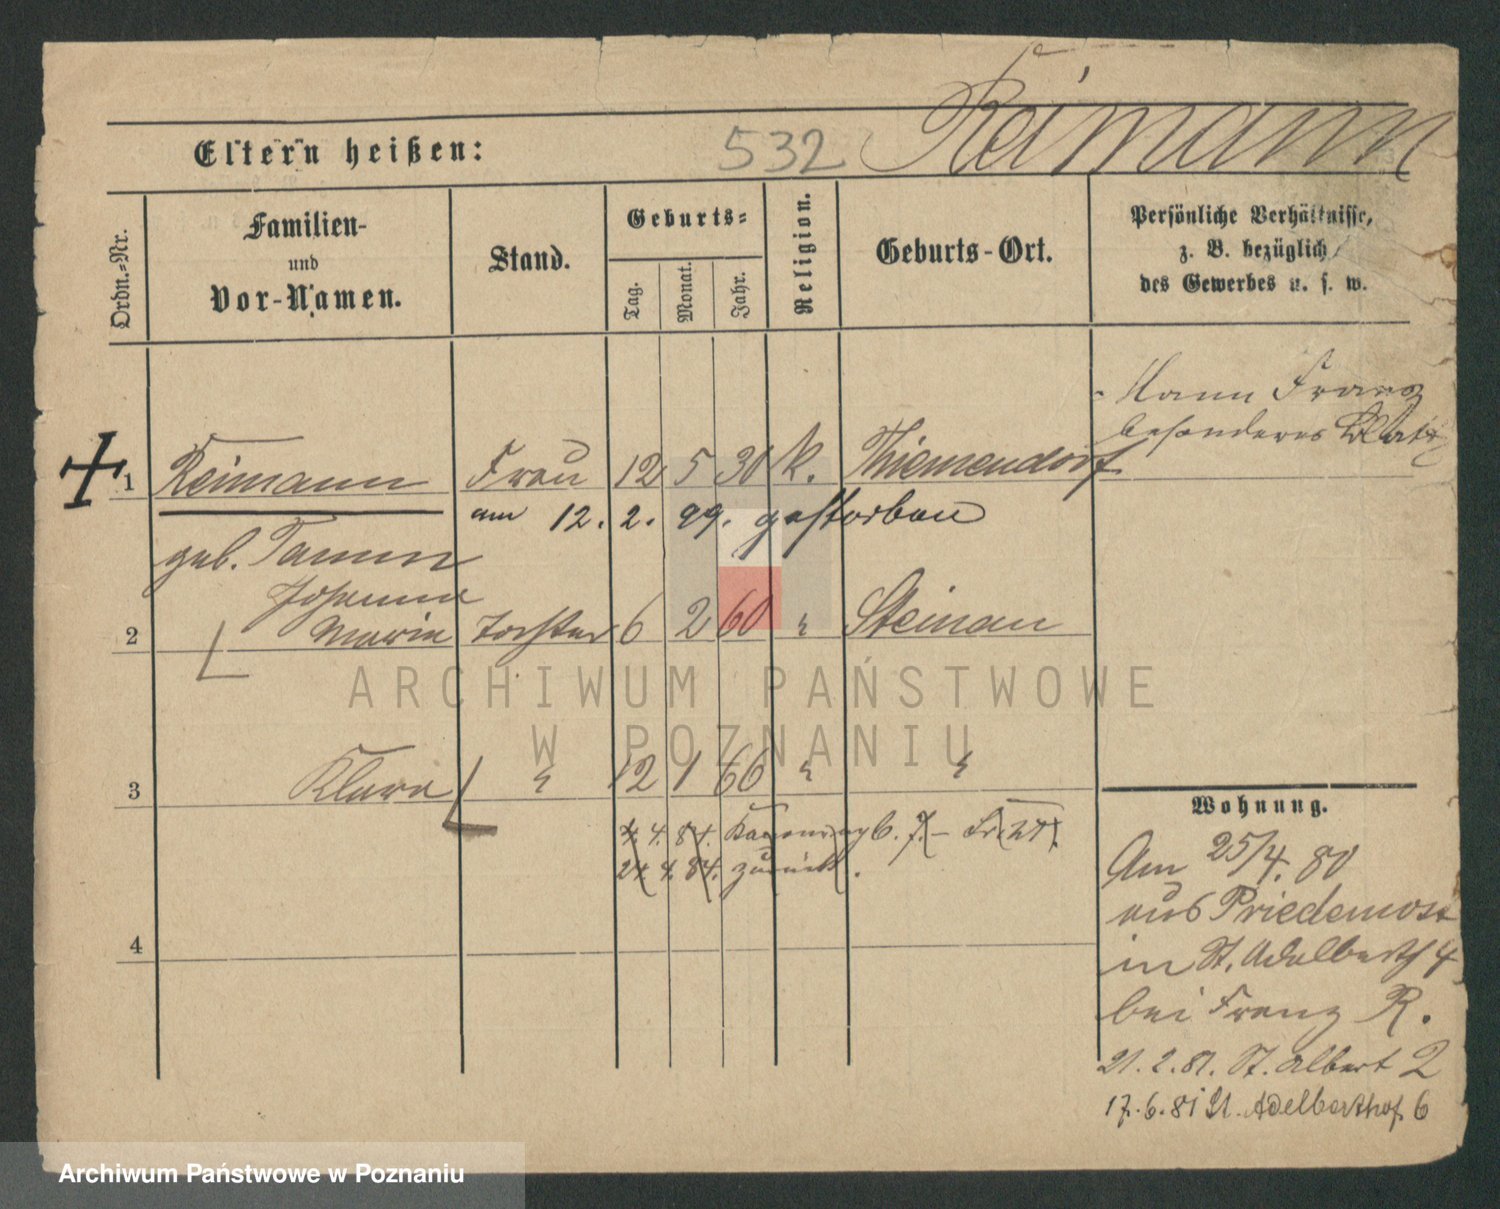 Eltern heißen:
532 Reimann
Ordn.-Nr.
Familien-
und
Vor-Namen.
Stand.
Geburts-
Tag.
Monat.
Jahr.
Religion.
Geburts-Ort.
Persönliche Verhältnisse,
z. B. bezüglich
des Gewerbes u. s. w.
Mann Franz
besonderes Blatt
1 Reimann Frau 12 5 30 k. Thiemendorf
am 12. 2. 99. gestorben
geb. Tamm
Johanna
2 Maria Tochter 6 2 60 " Steinau
3 Klara " 12 1 66 " "
4. 84.
24. 4. 84. zurück.
4
Wohnung.
Am 25/4. 80
aus Priedemost
in St. Adalberth 4
bei Franz R.
21. 2. 81. St. Albert 2
17. 6. 81 St. Adelberthof 6
ARCHIWUM PAŃSTWOWE
W POZNANIU
Archiwum Państwowe w Poznaniu